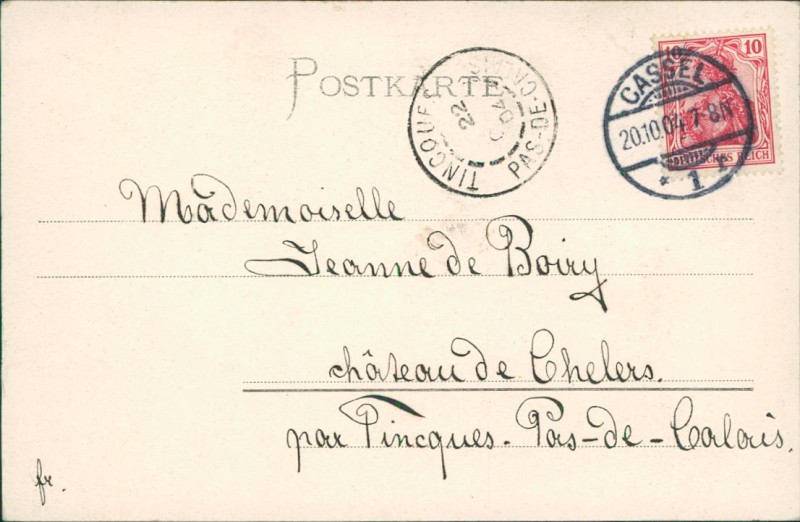 POSTKARTE
TINCQUES
22
04
PAS-DE-CALAIS
10
CASSEL
20.10.04.7-8N
* 1
DEUTSCHES REICH
Mademoiselle
Jeanne de Boiry
château de Chelers.
par Tincques - Pas-de-Calais.
fr.